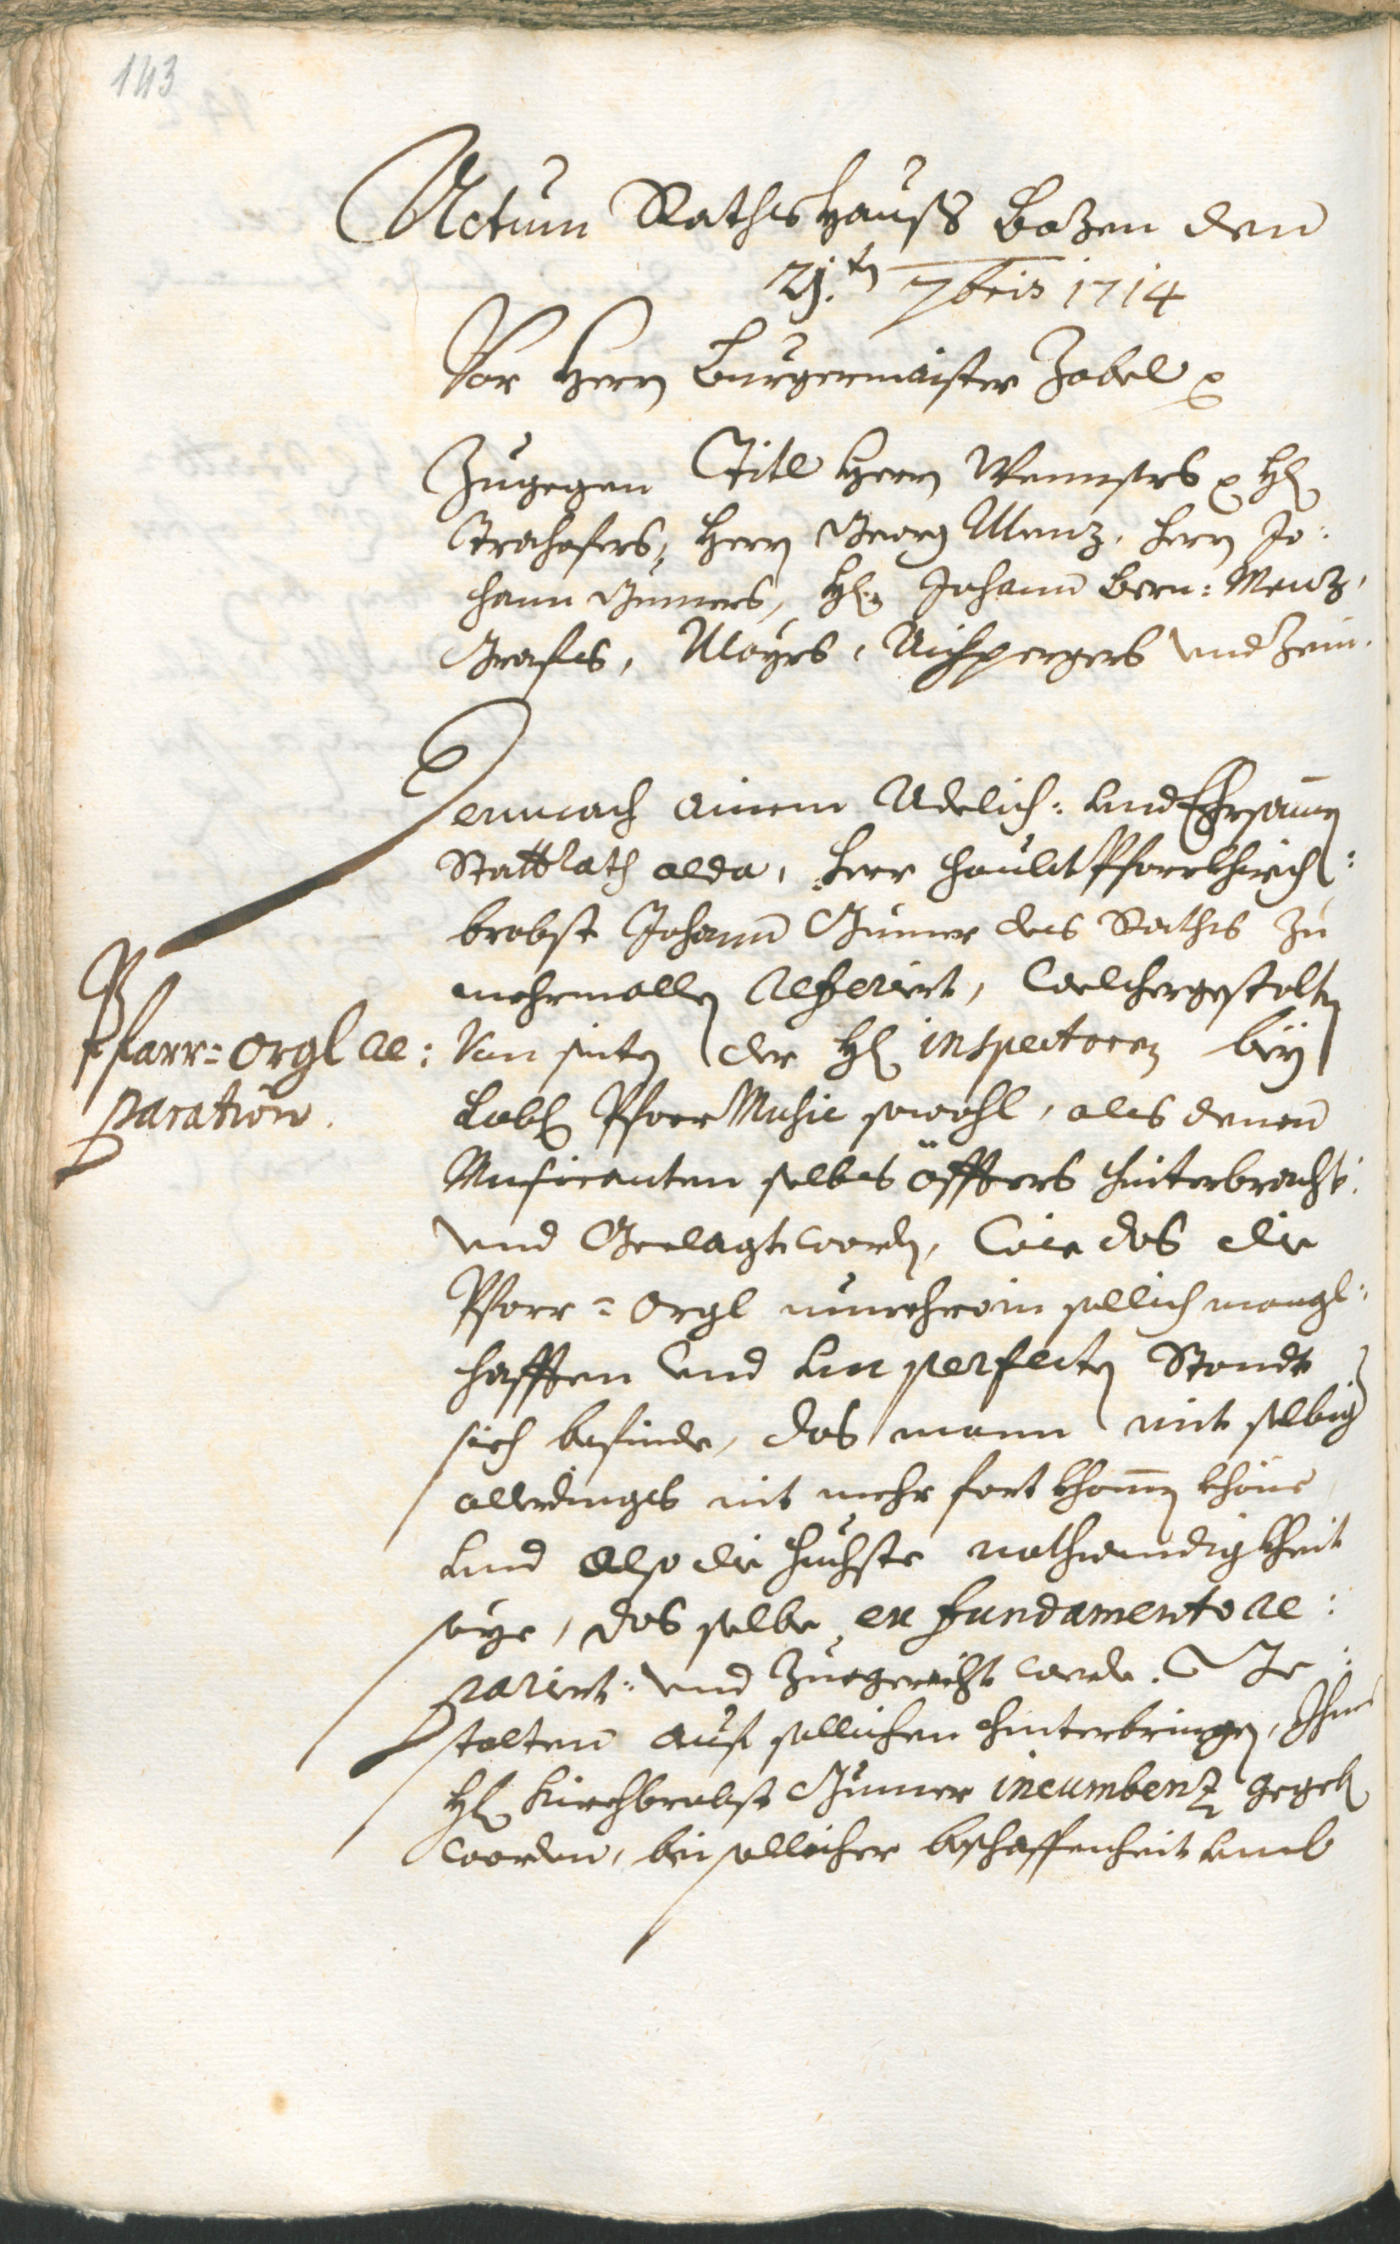 143
Actum Rathshauß Bozen den
21.ten 7bris 1714
Vor Herrn Burgermaister Zobel
Zugegen Titl Herrn Wenusers Hl
Trochofers, Herrn Georg Menz, Herrn Jo:
hann Gumers, Hl: Johann Bern: Menz,
Grafes, Mayrs, Aichpergers und Zein.
Demnach ainem Adelich: und Ehrsamen
Stattrath alda, Herr Haubt Pfarrkhirch:
brobst Johann Gumer des Raths zu
mehrmallen referirt, welchergestolten
Pfarr=orgl re:
paration.
von seiten der Hl inspectoren bey
Lobl Pfarr Music sowohl, als denen
Musicanten selbs öffters hinterbracht:
und Geclagt worden, wie das die
Pfarr=orgl nunmehro in sollich mangl:
hafften und unperfecten Standt
sich befinde, das mann mit selbiger
allerdings nit mehr fort khomen khöne
und also die höchste nothwendigkheit
seye, das selbe ex fundamento re:
parirt: und zuegericht werde. Ge:
stalten auf sollichen hinterbringen, Ihme
Hl Kirchbrobst Gumer incumbenz gegeben
worden, bei sollicher beschaffenheit umb